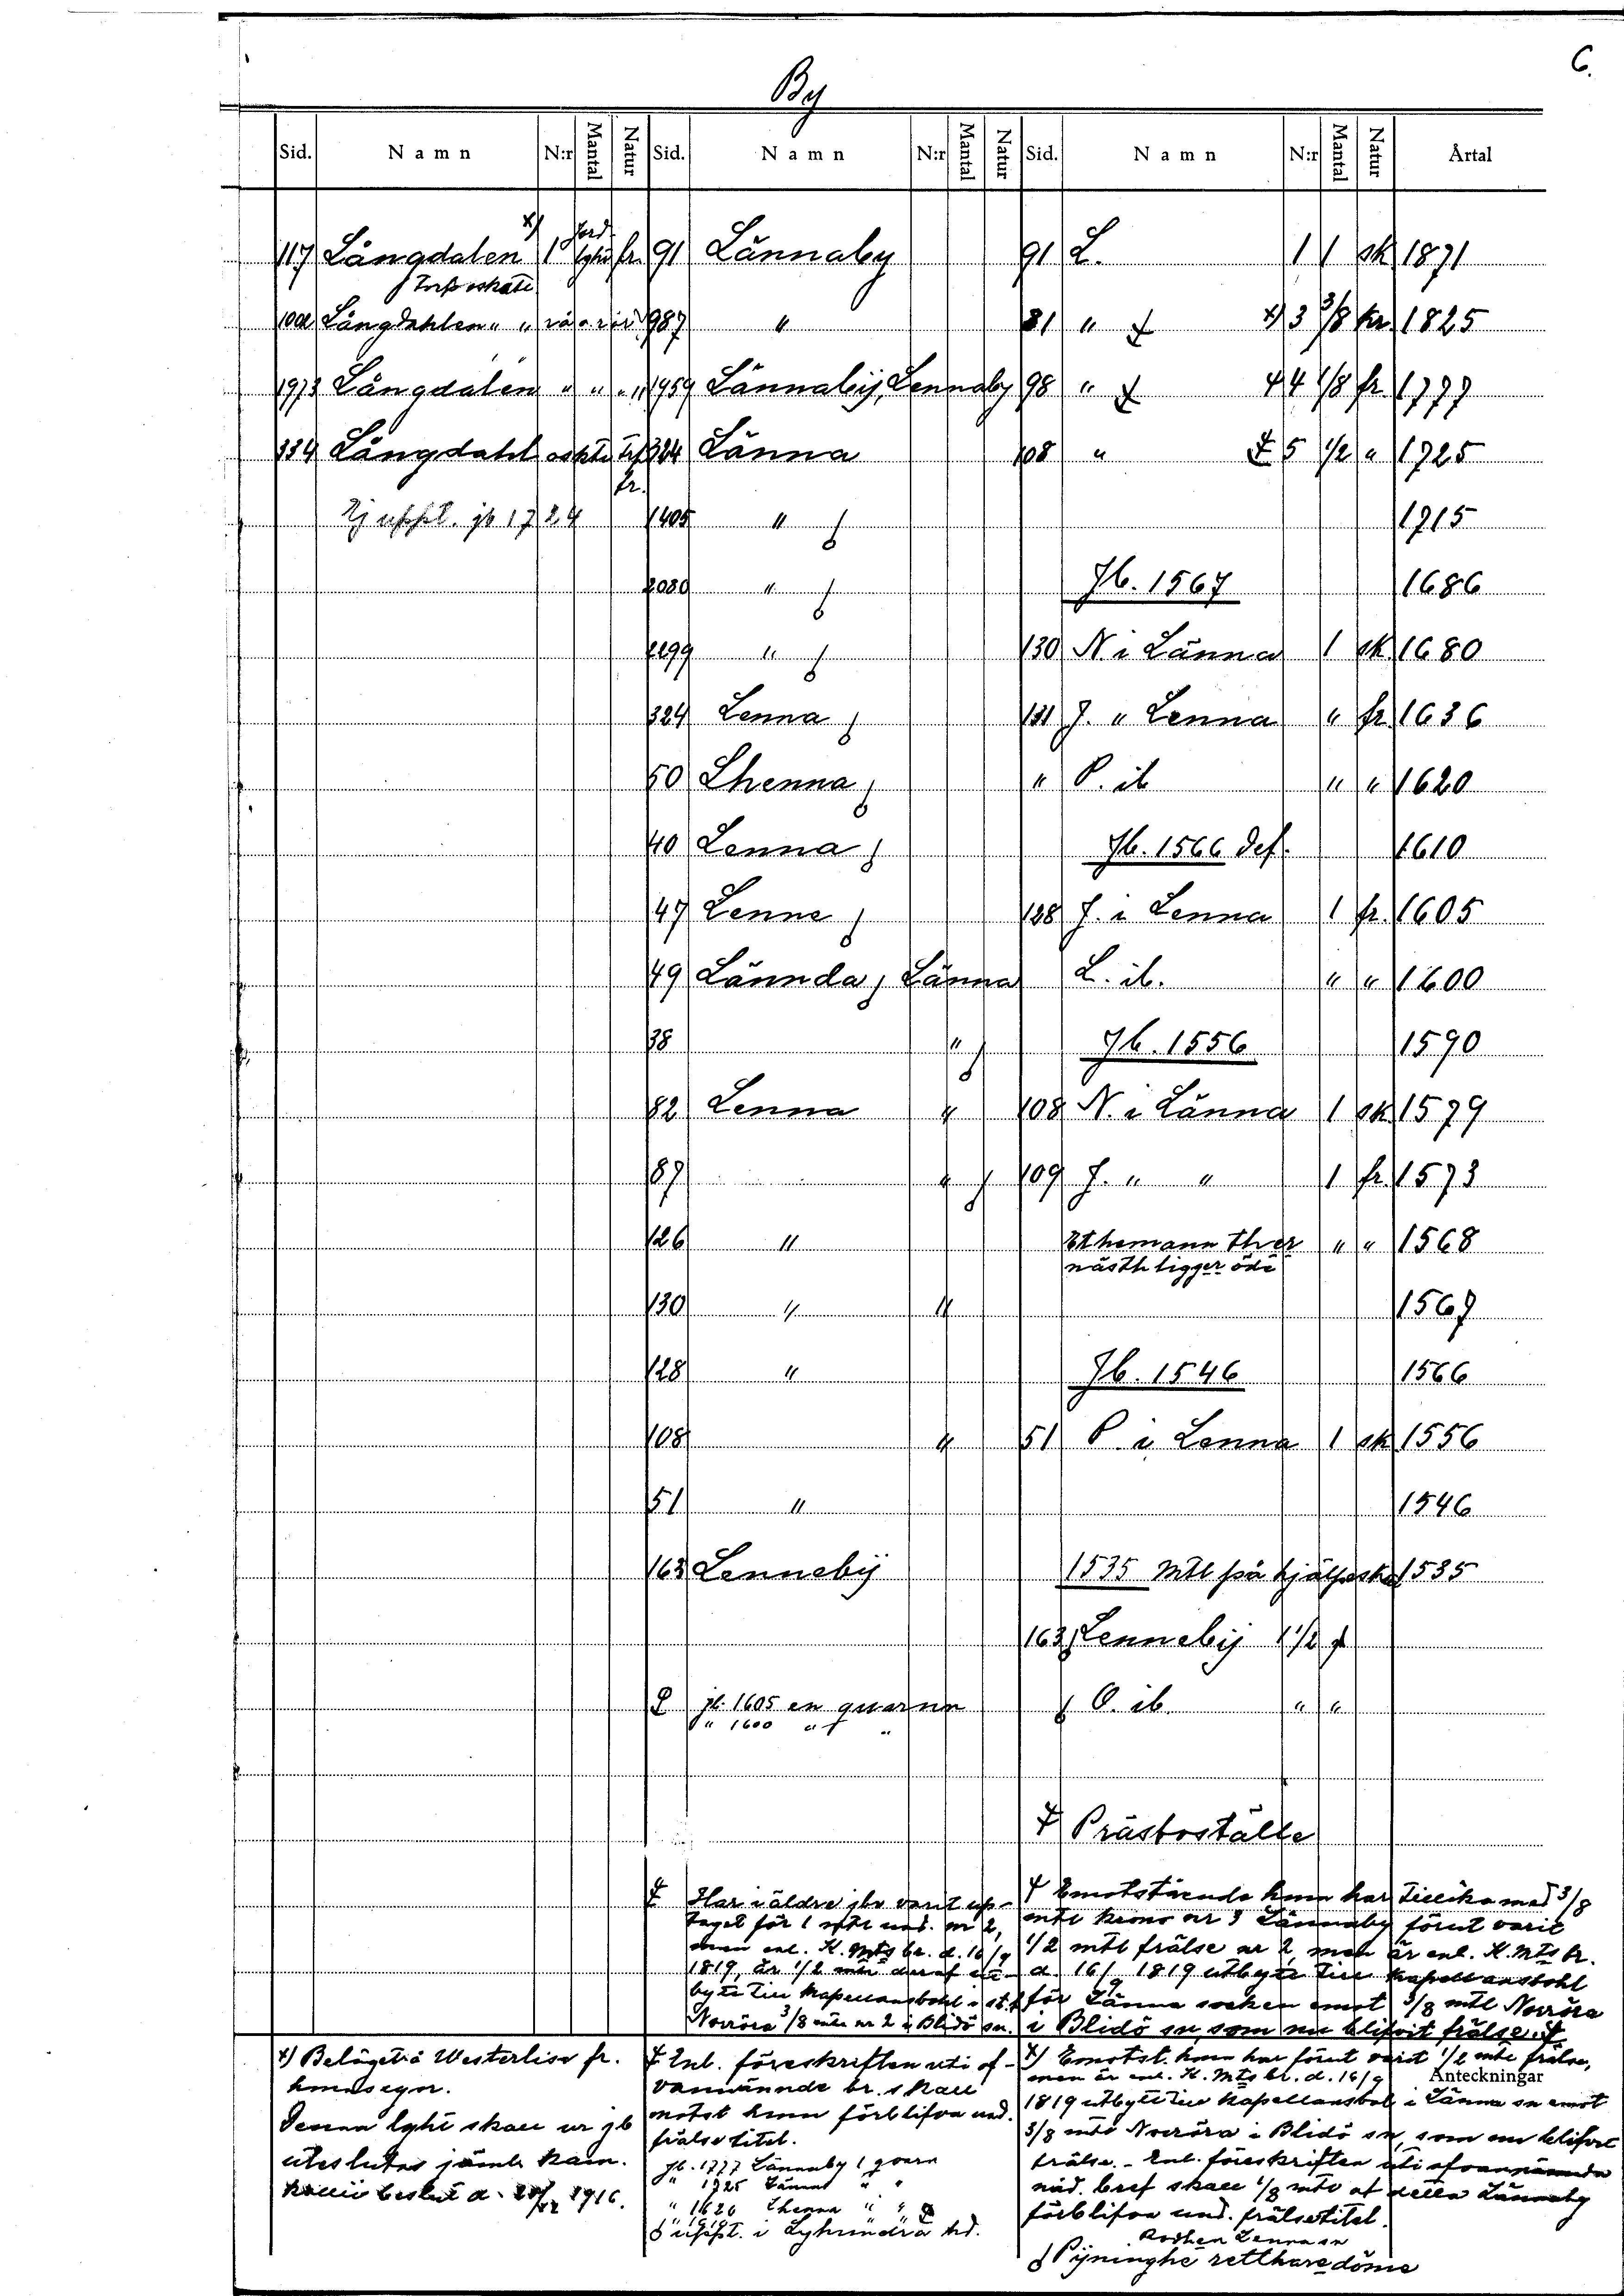 6.
By
Sid. Namn N:r Mantal Natur Sid. Namn N:r Mantal Natur Sid. Namn N:r Mantal Natur Årtal
117 Långdalen x) 1 Jord lght fr. 91 Lännaby 91 L. 1 1 sk 1871
Långdahlen " " 987 " 81 " x) 3 3/8 kr. 1825
1973 Långdalen " " " 1959 Lännabÿ, Lennaby 98 " 4 1/8 fr. 1777
334 Långdahl 324 Länna 108 " 5 1/2 " 1725
fr.
Ej uppt. jb 1724 1405 " 1715
2080 " Jb. 1567 1686
2299 " 130 N i Länna 1 sk 1680
324 Lenna 131 J. " Lenna " fr. 1636
50 Lhenna " P. ib " " 1620
40 Lenna Jb. 1566 def. 1610
47 Lenne 128 J. i Lenna 1 fr. 1605
49 Lännda, Länna L. ib. " " 1600
38 " Jb. 1556 1590
82 Lenna " 108 N. i Länna 1 sk 1579
87 " 109 J. " " 1 fr. 1573
126 " Ethemann ther " " 1568
nästh ligger öde
130 " " 1567
128 " Jb. 1546 1566
108 " 51 P i Lenna 1 sk 1556
51 " 1546
163 Lennebÿ 1535 Mtl på hjälpeskatt 1535
163 Lennebÿ 1 1/2
jb. 1605 en quarnn O. ib. " "
" 1600 " "
Prästboställe
Har i äldre jbr varit upp-
taget för 1 mtl und. nr 2,
men enl. K. Mts br. d. 16/9
1819, är 1/2 mtl deraf ut-
bytt till Kapellansbohl i st. f.
Norröra 3/8 mtl nr 2 i Blidö sn.
Emotstående hmn har tillika med 3/8
mtl krono nr 3 Lännaby förut varit
1/2 mtl frälse nr 2, men är enl. K. Mts br.
d. 16/9 1819 utbytt till Kapellansbohl
för Länna socken emot 3/8 mtl Norröra
i Blidö sn, som nu blifvit frälse.
x) Beläget å Westerlisa fr.
hmnsegor.
Denna lght skall ur jb
uteslutas jämlt kam.
kollii beslut d. 1916.
Enl. föreskriften uti of-
vannämnde br. skall
motst hmn förblifva und.
frälsetitel.
Jb. 1777 Lännaby 1 qvarn
" 1725 Länna " "
" 1620 Lhenna " "
uppt. i Lyhundra hd.
x) Emotst. hmn har förut varit 1/2 mtl frälse,
men är enl. K. Mts br. d. 16/9
Anteckningar
1819 utbytt till Kapellansbol i Länna sn emot
3/8 mtl Norröra i Blidö sn, som nu blifvit
frälse. - Enl. föreskriften uti ofvannämnda
nåd. bref skall 1/8 mtl af detta Lännaby
förblifva und. frälsetitel.
Rodhen Lenna sn
Pÿninghe retthare döme